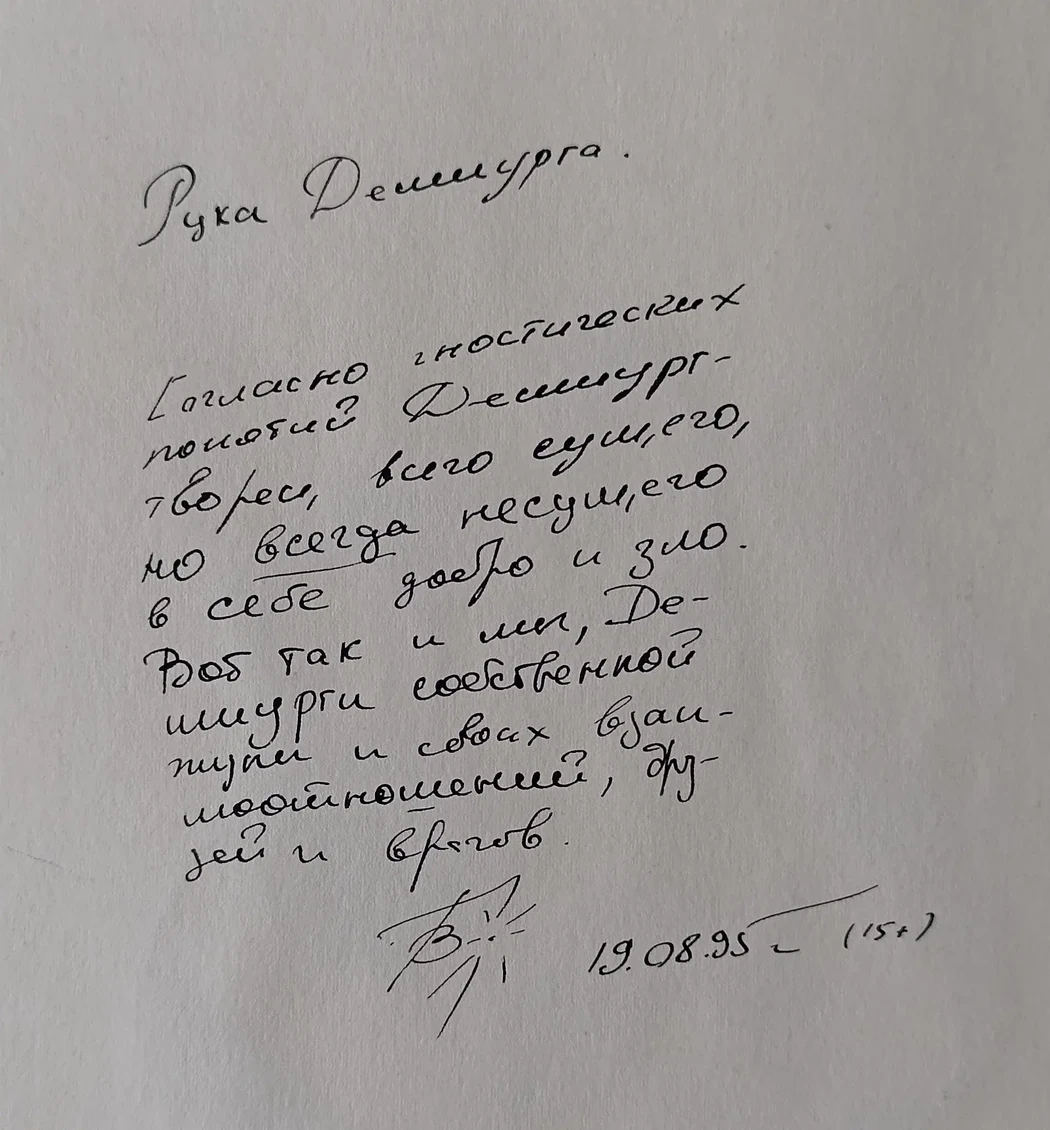 Рука Демиурга.
Согласно гностических
понятий Демиург-
творец, всего сущ,его,
но всегда несущ,его
в себе добро и зло.
Вот так и мы, Де-
миурги собственной
жизни и своих взаи-
моотношений, дру-
зей и врагов.
19.08.95 (15+)